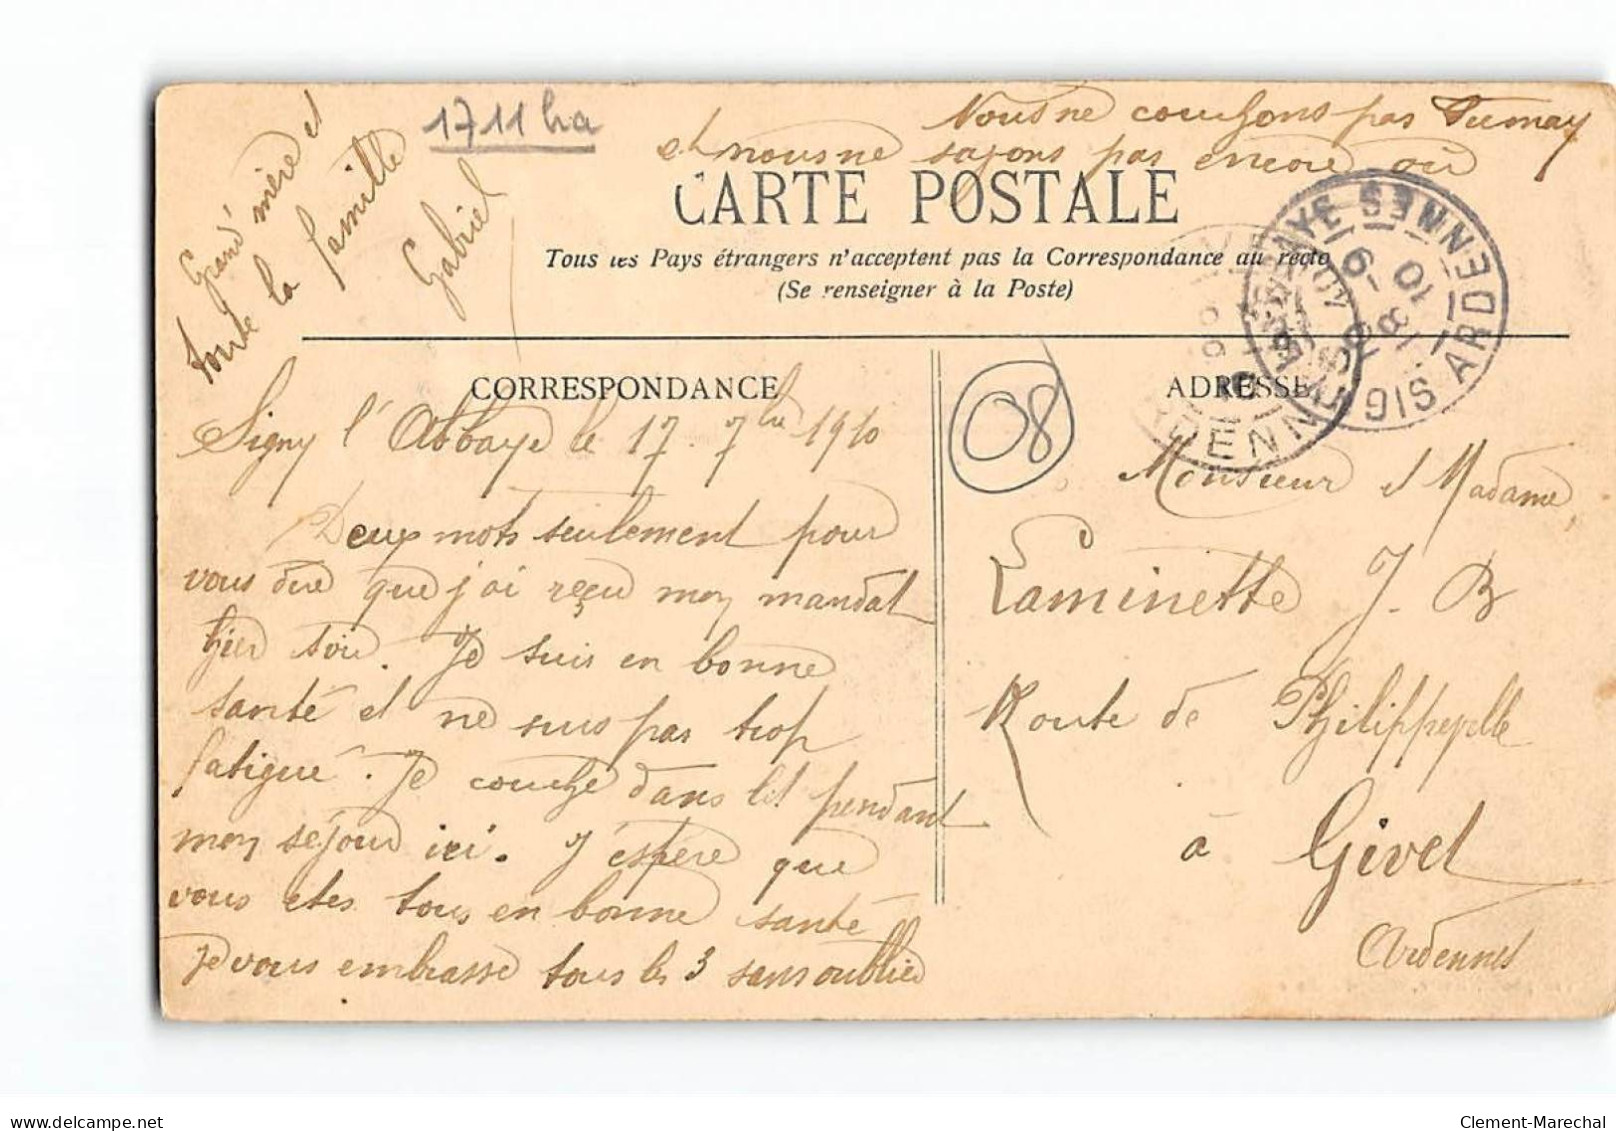 1711ha
Nous ne couchons pas Fumay
et nous ne sayons pas encore où
CARTE POSTALE
Tous les Pays étrangers n'acceptent pas la Correspondance au recto
(Se renseigner à la Poste)
CORRESPONDANCE
Signy l'Abbaye le 17 7bre 1910
Deux mots seulement pour
vous dire que j'ai reçu mon mandat
hier soir. Je suis en bonne
santé et ne suis pas trop
fatigué. Je couche dans lit pendant
mon séjour ici. J'éspère que
vous etes tous en bonne santé
Je vous embrasse tous les 3 sans oublier
Grand'mère et
toute la famille
Gabriel
08
ADRESSE
Monsieur et Madame,
Laminette J. B
Route de Philippeville
à Givet
Ardennes
ARDENNES
18 - 9
10
ARDENNES
delcampe.net
Clement-Marechal